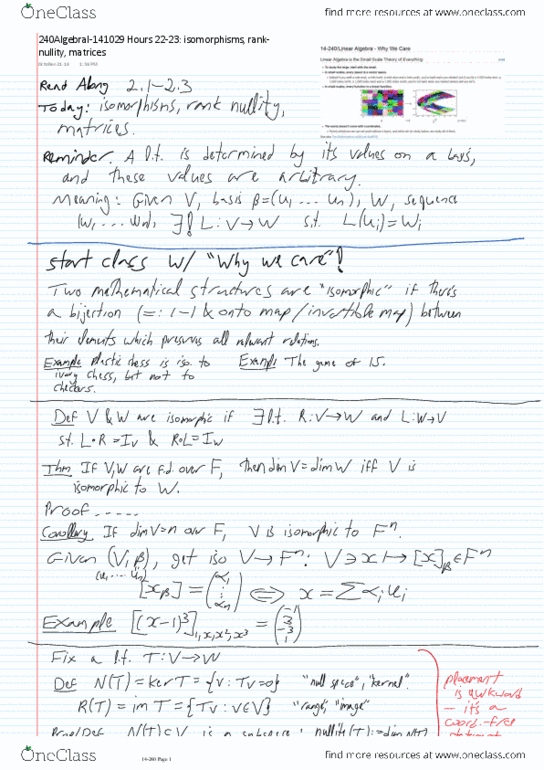 OneClass
find more resources at oneclass.com
240AlgebraI-141029 Hours 22-23: isomorphisms, rank-
nullity, matrices
14-240/Linear Algebra - Why We Care
Linear Algebra is the Small Scale Theory of Everything
Read Along 2.1-2.3
Today: isomorphisms, rank nullity,
matrices.
Reminder. A l.t. is determined by its values on a basis,
and these values are arbitrary.
Meaning: Given V, basis β=(u₁ ... uₙ), W, sequence
(w₁ ... wₙ), ∃! L: V→W s.t. L(uᵢ)=wᵢ
start class w/ "Why we care"!
Two mathematical structures are "isomorphic" if there's
a bijection (=: 1-1 & onto map/invertible map) between
their elements which preserves all relevant relations.
Example Plastic chess is iso. to
ivory chess, but not to
checkers.
Example The game of 15.
Def V & W are isomorphic if ∃ l.t. R:V→W and L:W→V
s.t. L∘R=I_V & R∘L=I_W
Thm If V,W are f.d. over F, then dim V=dim W iff V is
isomorphic to W.
Proof.....
Corollary If dim V=n over F, V is isomorphic to Fⁿ.
Given (V,β), get iso V→Fⁿ: V∋x↦[x]_β∈Fⁿ
(u₁ ... uₙ)
[x_β]=(α₁ ⋮ αₙ) ⟺ x=Σαᵢuᵢ
Example [(x-1)³]₁,ₓ,ₓ²,ₓ³ = (-1 3 -3 1)
Fix a l.t. T:V→W
Def N(T)=ker T={v: Tv=0} "null space", "kernel".
R(T)=im T={Tv: v∈V} "range", "image"
placement
is awkward
- it's a
coord.-free
statement
Prop/Def N(T)⊂V is a subspace; nullity(T):=dim N(T)
OneClass
14-240 Page 1
find more resources at oneclass.com